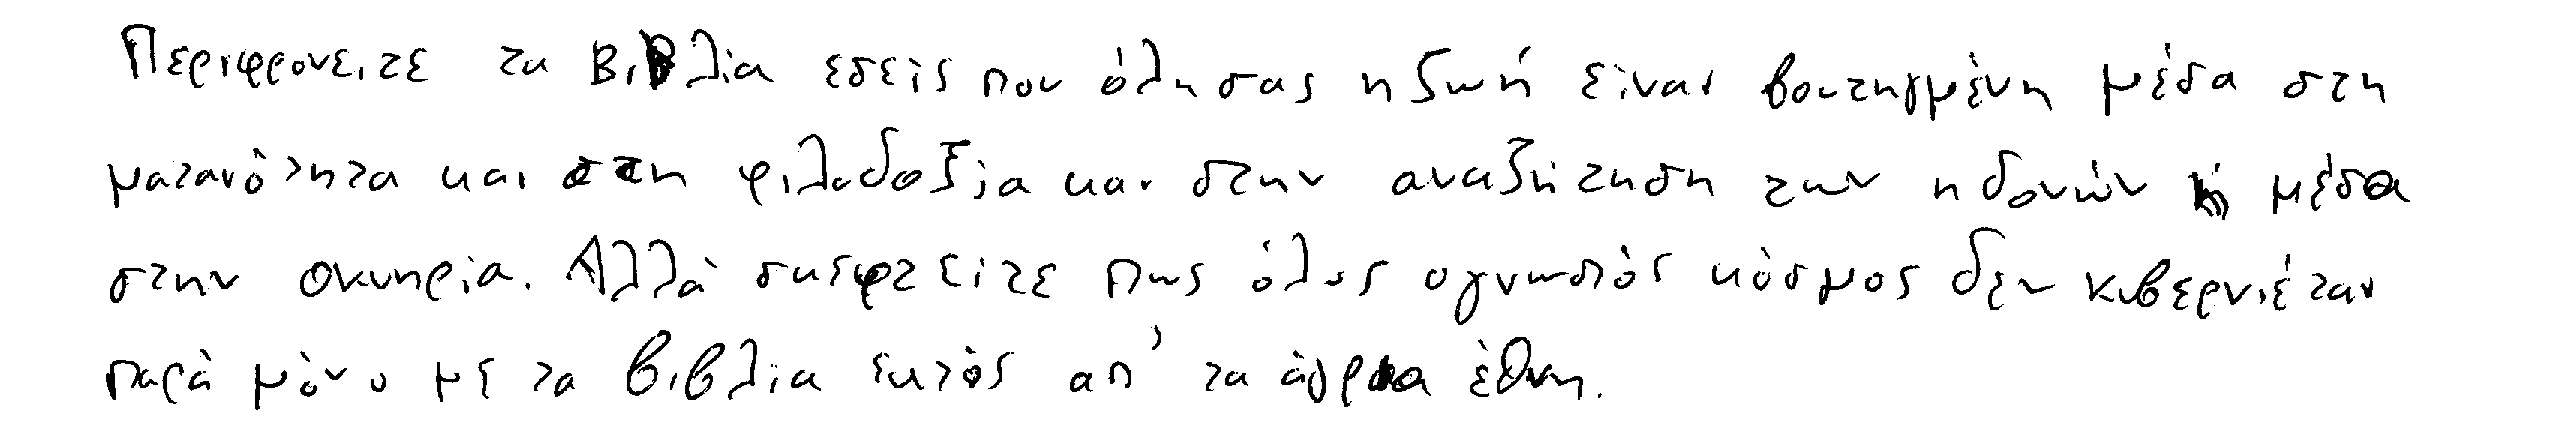 Περιφρονειτε τα Βιβλία εσείς που όλη σας η ζωή είναι βουτηγμένη μέσα στη
ματαιότητα και στη φιλοδοξία και στην αναζήτηση των ηδονών ή μέσα
στην οκνηρία. Αλλά σκεφτείτε πως όλος ο γνωστός κόσμος δεν κιβερνιέται
παρά μόνο με τα βιβλία εκτός απ' τα άγρια έθνη.